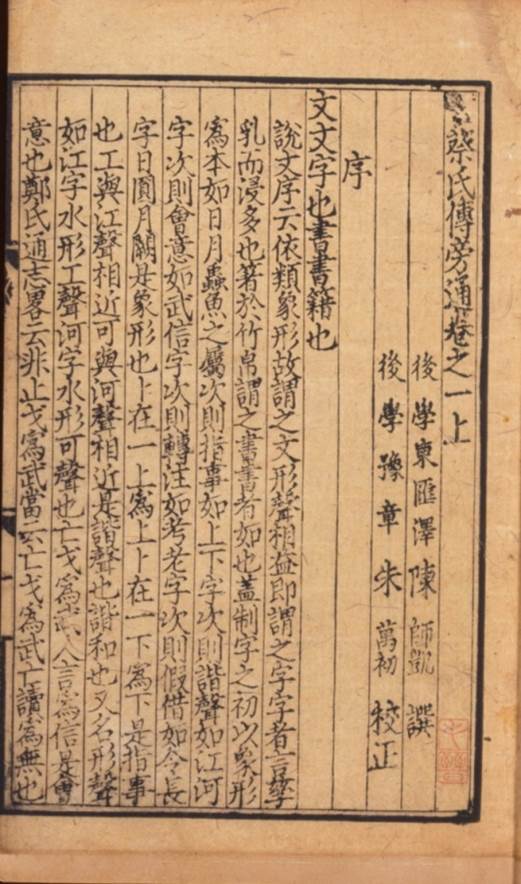 蔡氏傳旁通卷之一上
後學東匯澤陳師凱撰
後學豫章朱萬初校正
序
文文字也書書籍也
說文序云依類象形故謂之文形聲相益即謂之字字者言孳
乳而浸多也著於竹帛謂之書書者如也蓋制字之初以象形
為本如日月蟲魚之屬次則指事如上下字次則諧聲如江河
字次則會意如武信字次則轉注如考老字次則假借如令長
字日圓月闕是象形也卜在一上為上卜在一下為下是指事
也工與江聲相近可與河聲相近是諧聲也諧和也又名形聲
如江字水形工聲河字水形可聲也亡戈為武人言為信是會
意也鄭氏通志畧云非止戈為武當云亡戈為武亡讀為無也